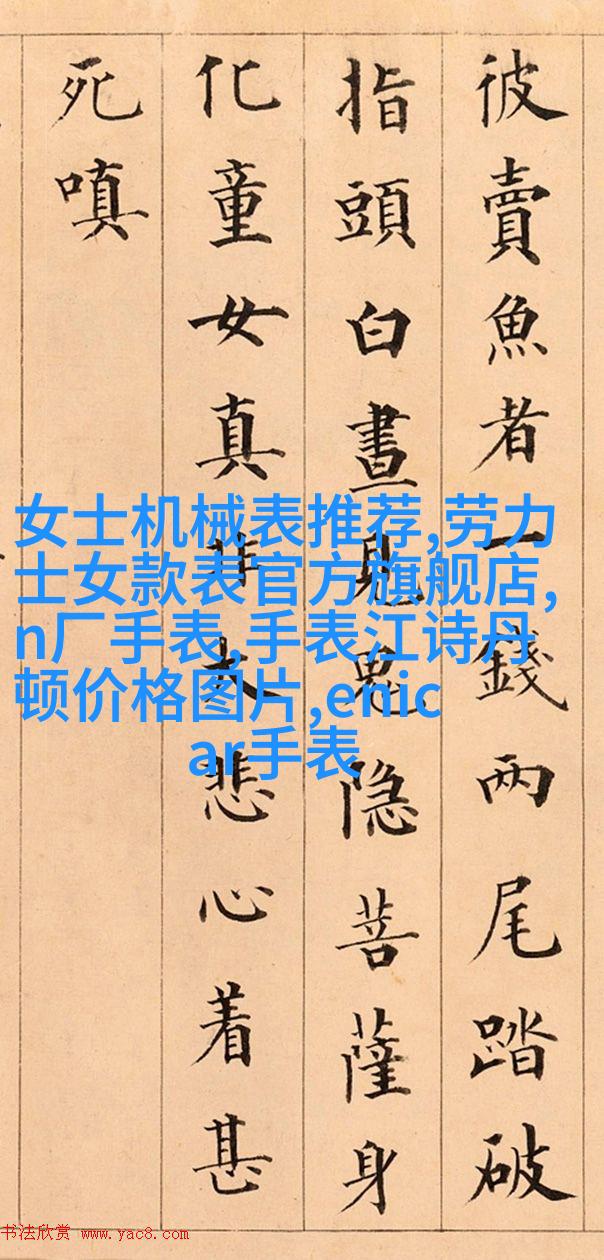 彼賣魚者一錢兩尾踏破
指頭白晝見鬼隐菩薩身
化童女真非大悲心着甚
死嗔
女士机械表推荐,劳力
士女款表官方旗舰店,
n厂手表,手表江诗丹
顿价格图片,enic
ar手表
书法欣赏 www.yac8.com